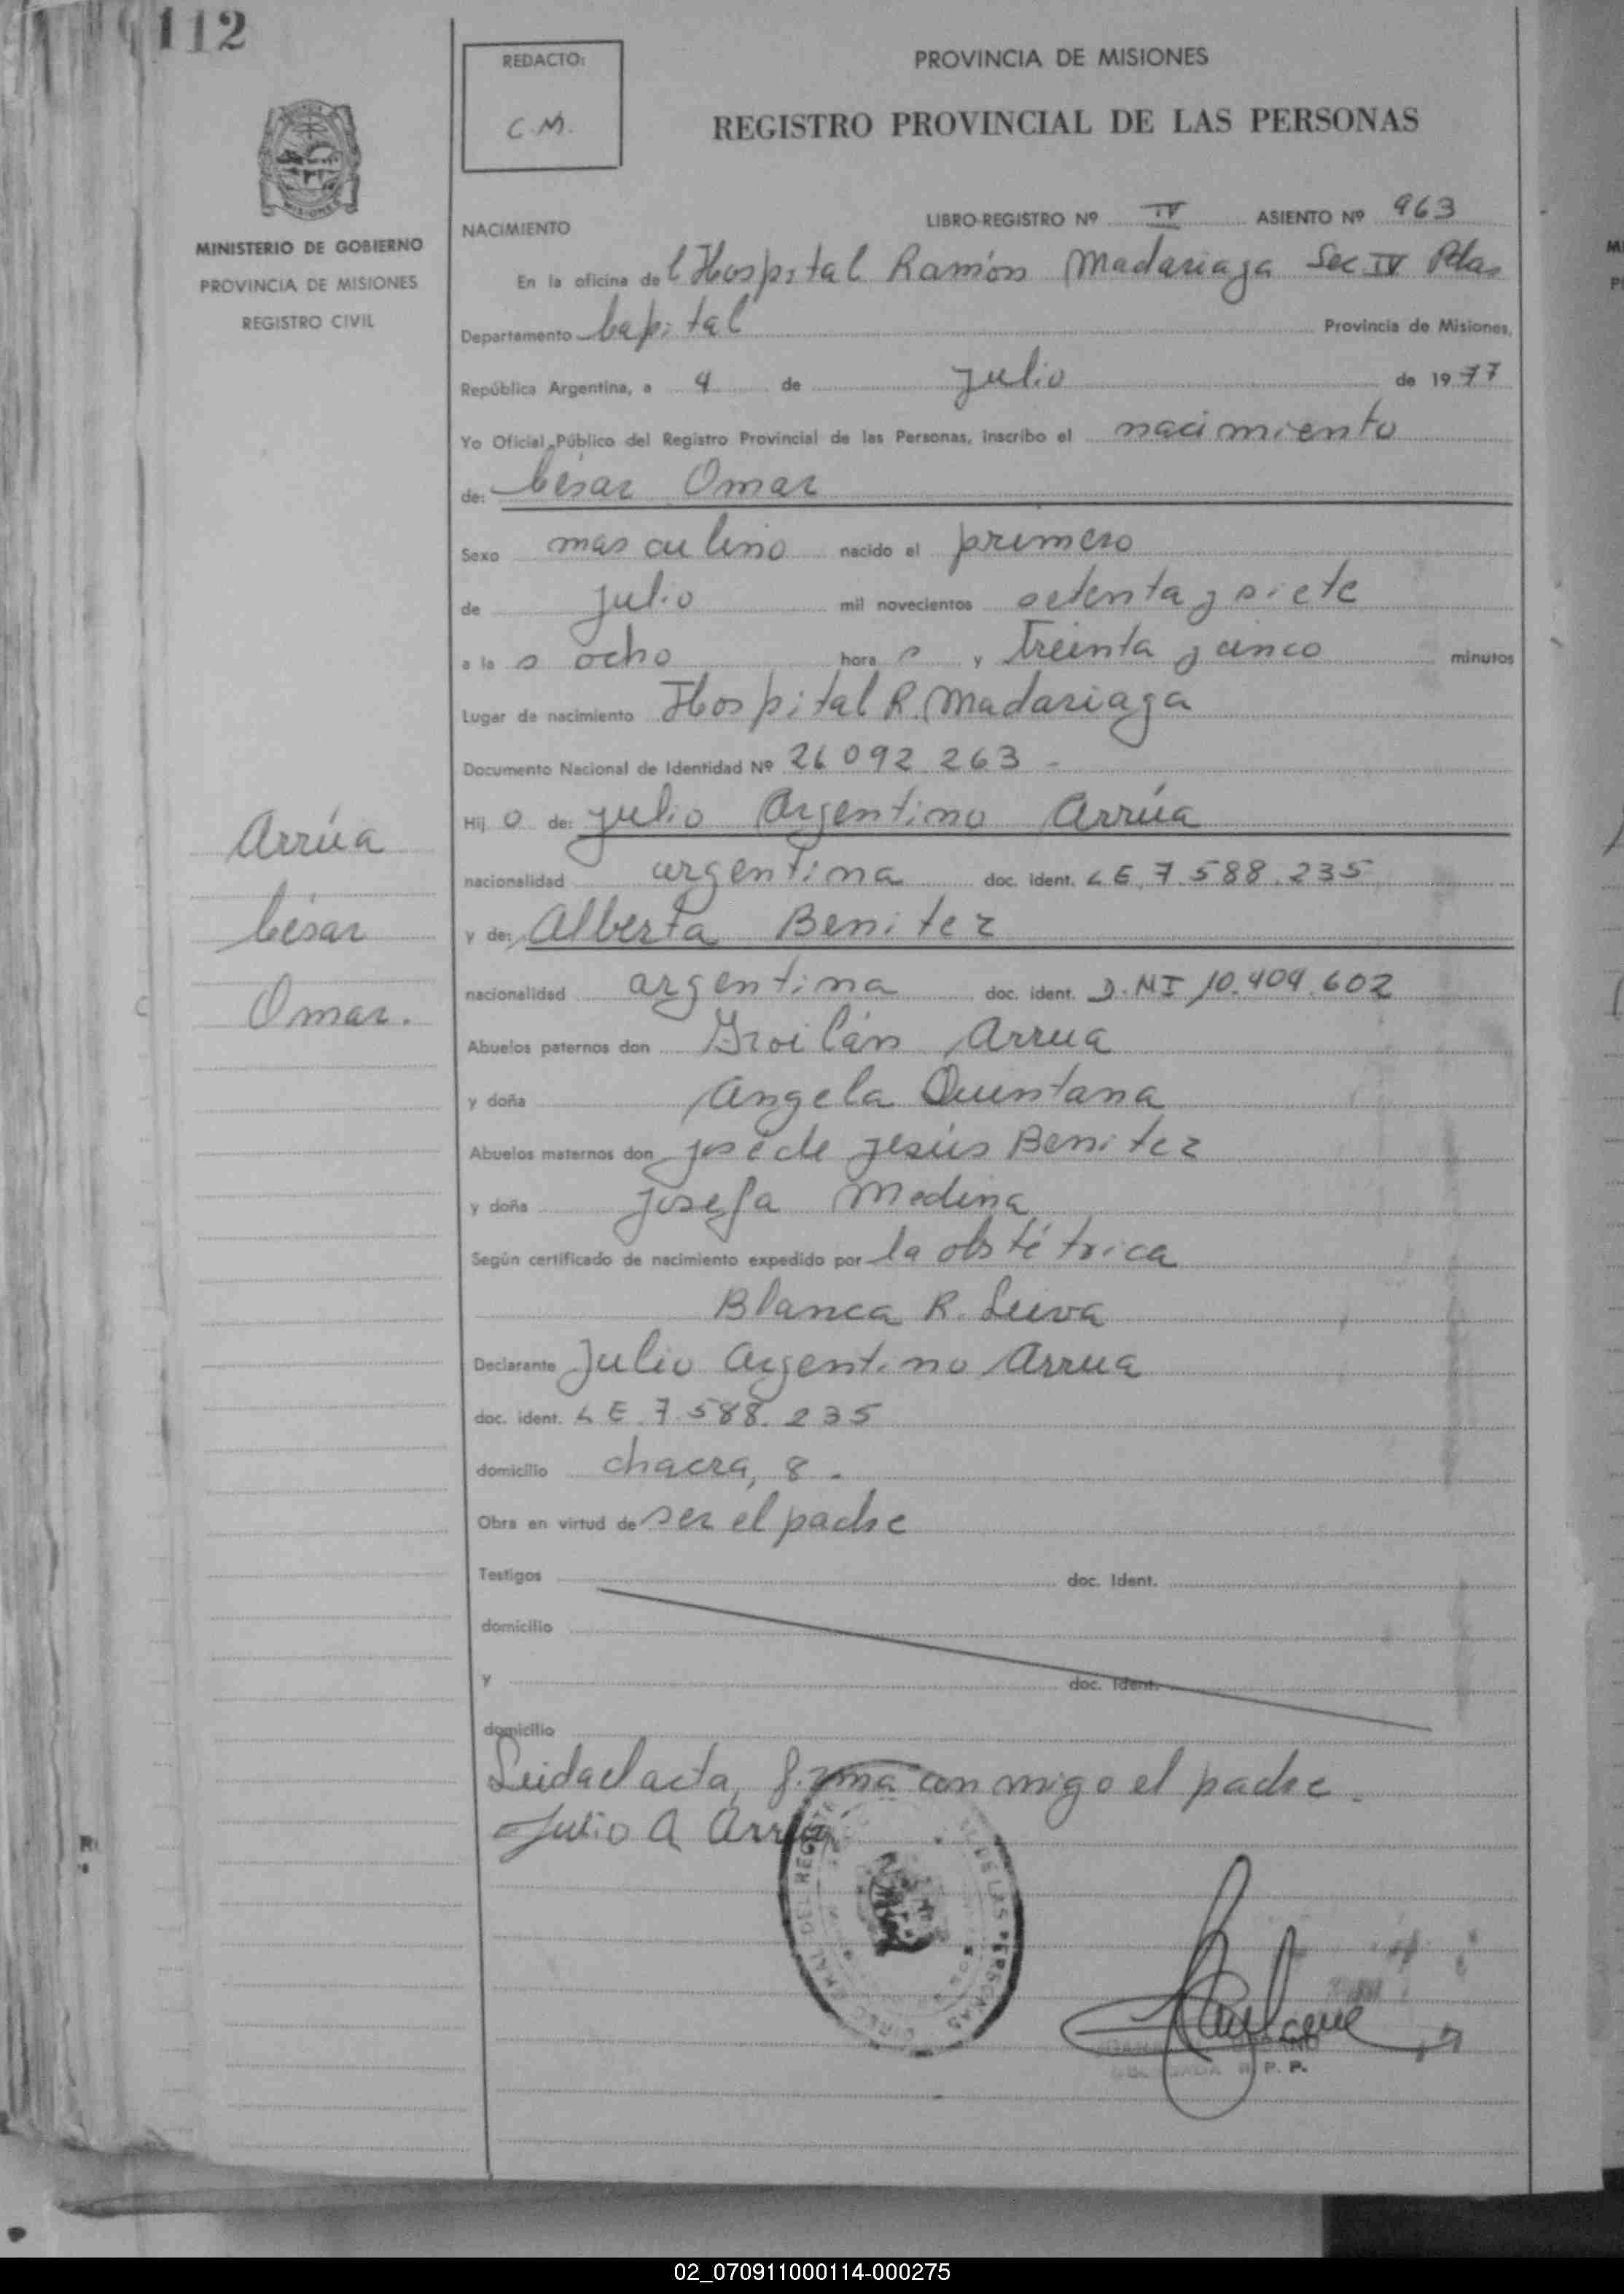 112
REDACTO:
C.M.
PROVINCIA DE MISIONES
REGISTRO PROVINCIAL DE LAS PERSONAS
MISIONES
MINISTERIO DE GOBIERNO
PROVINCIA DE MISIONES
REGISTRO CIVIL
NACIMIENTO
LIBRO-REGISTRO Nº IV ASIENTO Nº 963
En la oficina del Hospital Ramón Madariaga Sec IV Pdas
Departamento Capital Provincia de Misiones,
República Argentina, a 4 de julio de 1977
Yo Oficial Público del Registro Provincial de las Personas, inscribo el nacimiento
de: César Omar
Sexo masculino nacido el primero
de julio mil novecientos setenta y siete
a las ocho horas y treinta y cinco minutos
Lugar de nacimiento Hospital R. Madariaga
Documento Nacional de Identidad Nº 26 092.263 -
Hijo de: Julio Argentino Arrúa
nacionalidad argentina doc. ident. LE, 7.588.235
y de: Alberta Benitez
nacionalidad argentina doc. ident. D.MI 10.409.602
Abuelos paternos don Froilán Arrua
y doña Angela Quintana
Abuelos maternos don José de Jesús Benitez
y doña Josefa Medina
Según certificado de nacimiento expedido por la obstétrica
Blanca R. Leiva
Declarante Julio Argentino Arrua
doc. ident. LE. 7.588.235
domicilio chacra, 8.
Obra en virtud de ser el padre
Testigos doc. Ident.
domicilio
y doc. Ident.
domicilio
Leida el acta, firma conmigo el padre.
Julio A Arrúa
Arrúa
César
Omar.
DEL REGISTRO
DE LAS PERSONAS
R. P. P.
02_070911000114-000275